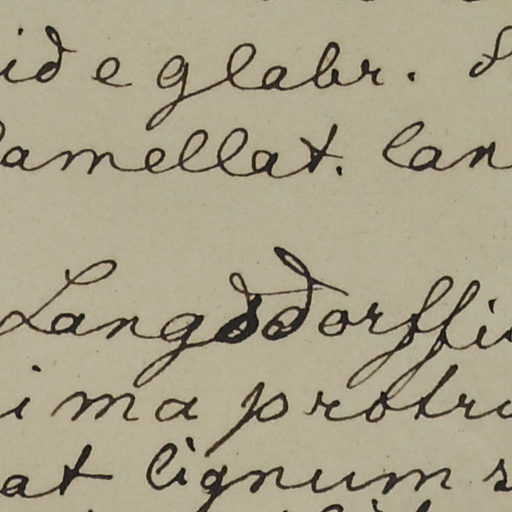 id e glabr.
lamellat. lan
Langsdorffi
ima protru
at lignum s